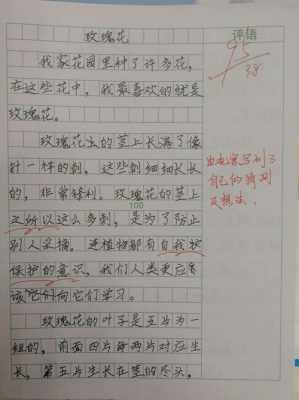 玫瑰花
评语
我家花园里种了许多花，
在这些花中，我最喜欢的就是
玫瑰花。
95
38
玫瑰花的茎上长满了像
针一样的刺，这些刺细细长长
的，非常锋利。玫瑰花的茎上
100
之所以这么多刺，是为了防止
别人采摘。连植物都有自我护
保护的意识，我们人类更应
该它们向它们学习。
玫瑰花的叶子是五片为一
组的，前面四片每两片对应生
长，第五片生长在茎的尽头。
自己的
及想法。